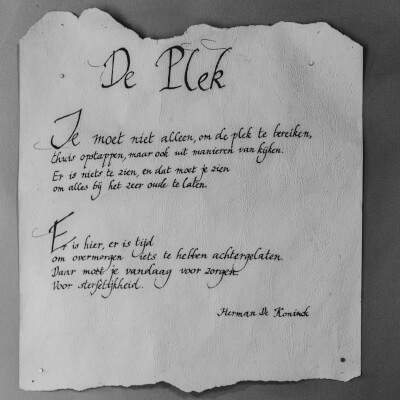 De Plek
Je moet niet alleen, om de plek te bereiken,
thuis opstappen, maar ook uit manieren van kijken.
Er is niets te zien, en dat moet je zien
om alles bij het zeer oude te laten.
Er is hier, er is tijd
om overmorgen iets te hebben achtergelaten.
Daar moet je vandaag voor zorgen.
Voor sterfelijkheid.
Herman De Koninck